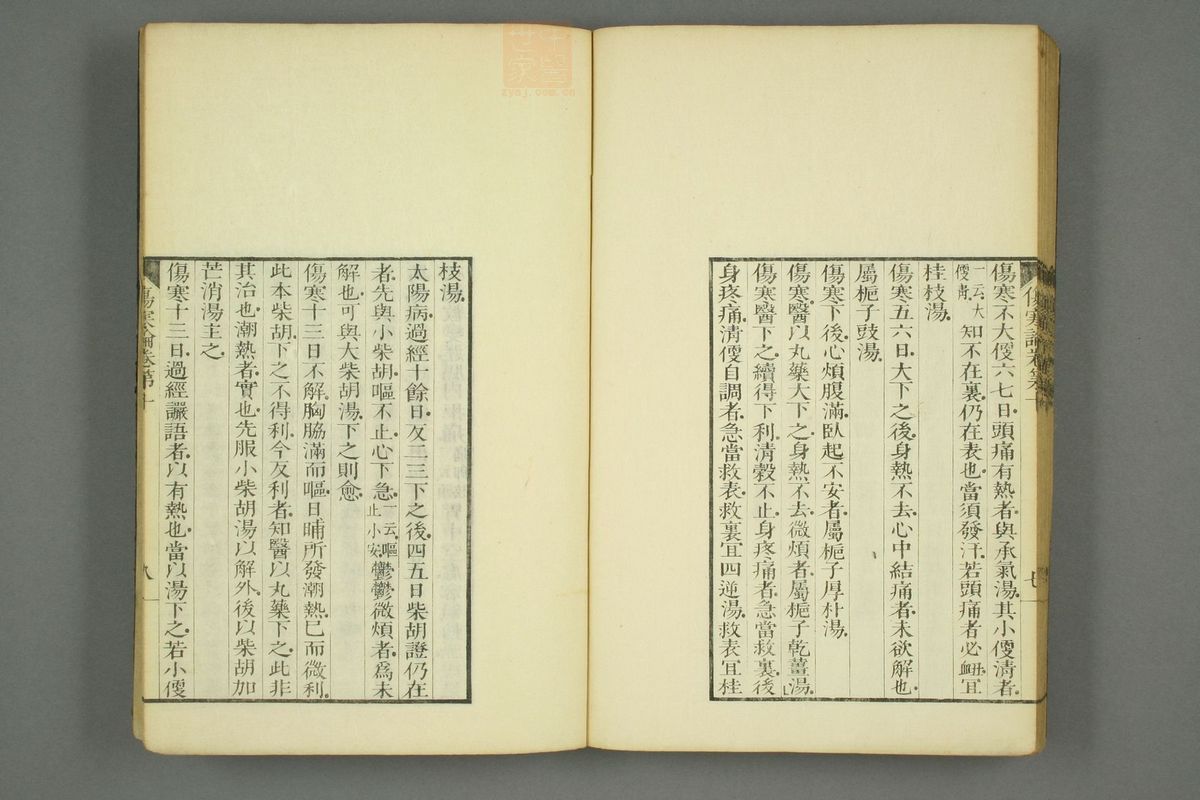 傷寒不大便六七日頭痛有熱者與承氣湯其小便淸者
一云大便靑知不在裏仍在表也當須發汗若頭痛者必衄宜
桂枝湯
傷寒五六日大下之後身熱不去心中結痛者未欲解也
屬梔子豉湯
傷寒下後心煩腹滿臥起不安者屬梔子厚朴湯
傷寒醫以丸藥大下之身熱不去微煩者屬梔子乾薑湯
傷寒醫下之續得下利淸穀不止身疼痛者急當救裏後
身疼痛淸便自調者急當救表救裏宜四逆湯救表宜桂
枝湯
太陽病過經十餘日反二三下之後四五日柴胡證仍在
者先與小柴胡嘔不止心下急一云嘔止小安鬱鬱微煩者爲未
解也可與大柴胡湯下之則愈
傷寒十三日不解胸脇滿而嘔日晡所發潮熱已而微利
此本柴胡下之不得利今反利者知醫以丸藥下之此非
其治也潮熱者實也先服小柴胡湯以解外後以柴胡加
芒消湯主之
傷寒十三日過經讝語者以有熱也當以湯下之若小便
傷寒論卷第十
八
七
中醫世家
zysj.com.cn